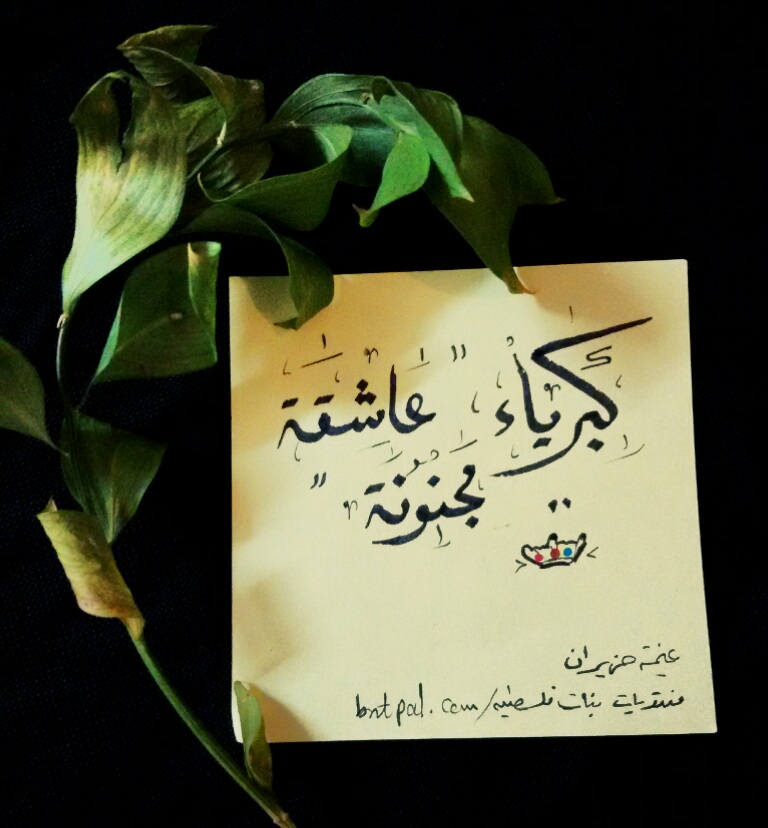 كبرياء " عاشقة
مجنونة "
غيمة حزيران
منتديات بنات فلسطين/bntpal.com